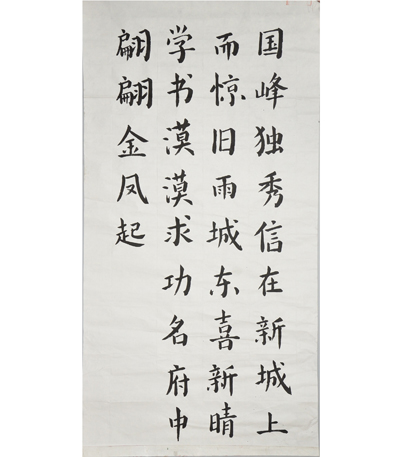 国峰独秀信在新城上
而惊旧雨城东喜新晴
学书漠漠求功名府中
翩翩金凤起